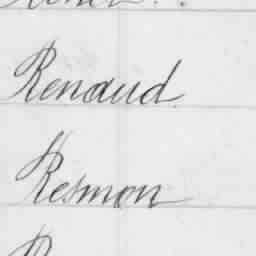 Renaud
Resmon